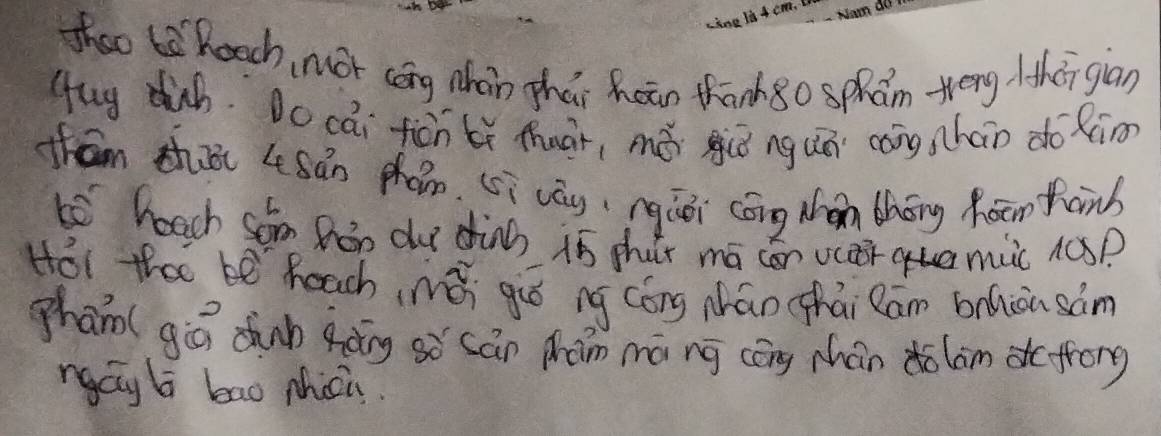 cũng là 4 cm.
Nam do
theo kế hoạch, một công nhân phải hoàn thành 80 sphẩm trong 1 thời gian
quy định. Do cải tiến kĩ thuật, mỗi giờ người công nhân đó làm
thêm được 4 sản phẩm. Vì vậy, người công nhân không hoàn thành
kế hoạch sớm hơn dự định 15 phút mà còn vượt qua mức 10SP.
Hỏi theo kế hoạch, mỗi giờ ng công nhân phải làm bnhiêu sản
phẩm( giả định rằng số sản phẩm mà ng công nhân đó làm đc trong
ngày là bao nhiêu.